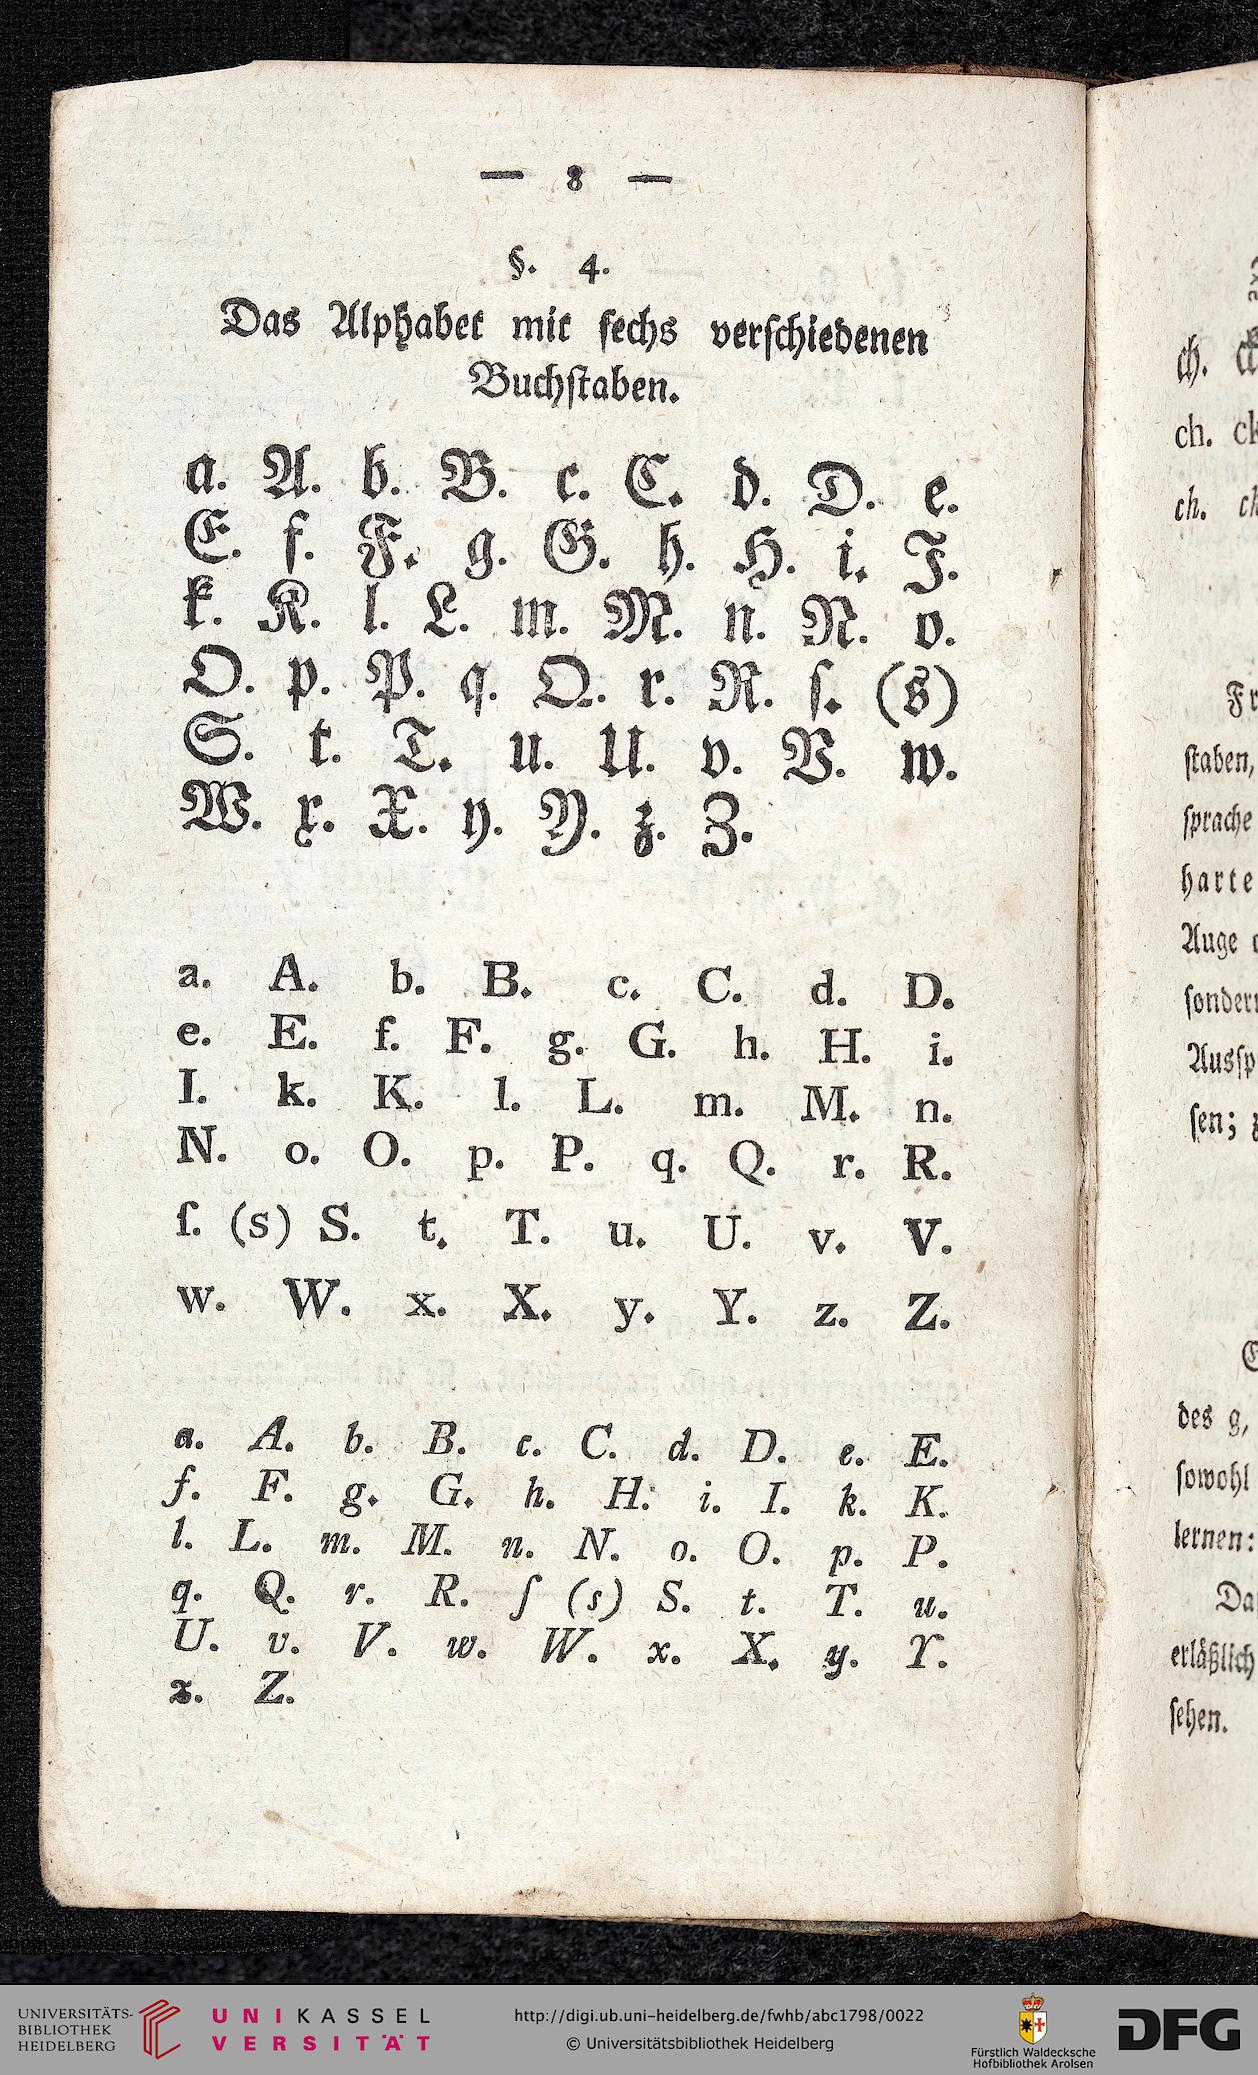 — 8 —
§. 4.
Das Alphabet mit ſechs verſchiedenen
Buchſtaben.
a. A. b. B. c. C. d. D. e.
E. f. F. g. G. h. H. i. J.
k. K. l. L. m. M. n. N. o.
O. p. P. q. Q. r. R. ſ. (s)
S. t. T. u. U. v. V. w.
W. x. X. y. Y. z. Z.
a. A. b. B. c. C. d. D.
e. E. f. F. g. G. h. H. i.
I. k. K. l. L. m. M. n.
N. o. O. p. P. q. Q. r. R.
ſ. (s) S. t. T. u. U. v. V.
w. W. x. X. y. Y. z. Z.
a. A. b. B. c. C. d. D. e. E.
f. F. g. G. h. H. i. I. k. K.
l. L. m. M. n. N. o. O. p. P.
q. Q. r. R. ſ (s) S. t. T. u.
U. v. V. w. W. x. X. y. Y.
z. Z.
ch.
ch. ck
ch.
ſtaben,
ſprache
harte
Auge
ſen;
des g,
ſowohl
lernen:
Da
erläßlich
ſehen.
UNIVERSITÄTS-
BIBLIOTHEK
HEIDELBERG
UNIKASSEL
VERSITÄT
http://digi.ub.uni-heidelberg.de/fwhb/abc1798/0022
© Universitätsbibliothek Heidelberg
Fürstlich Waldecksche
Hofbibliothek Arolsen
DFG